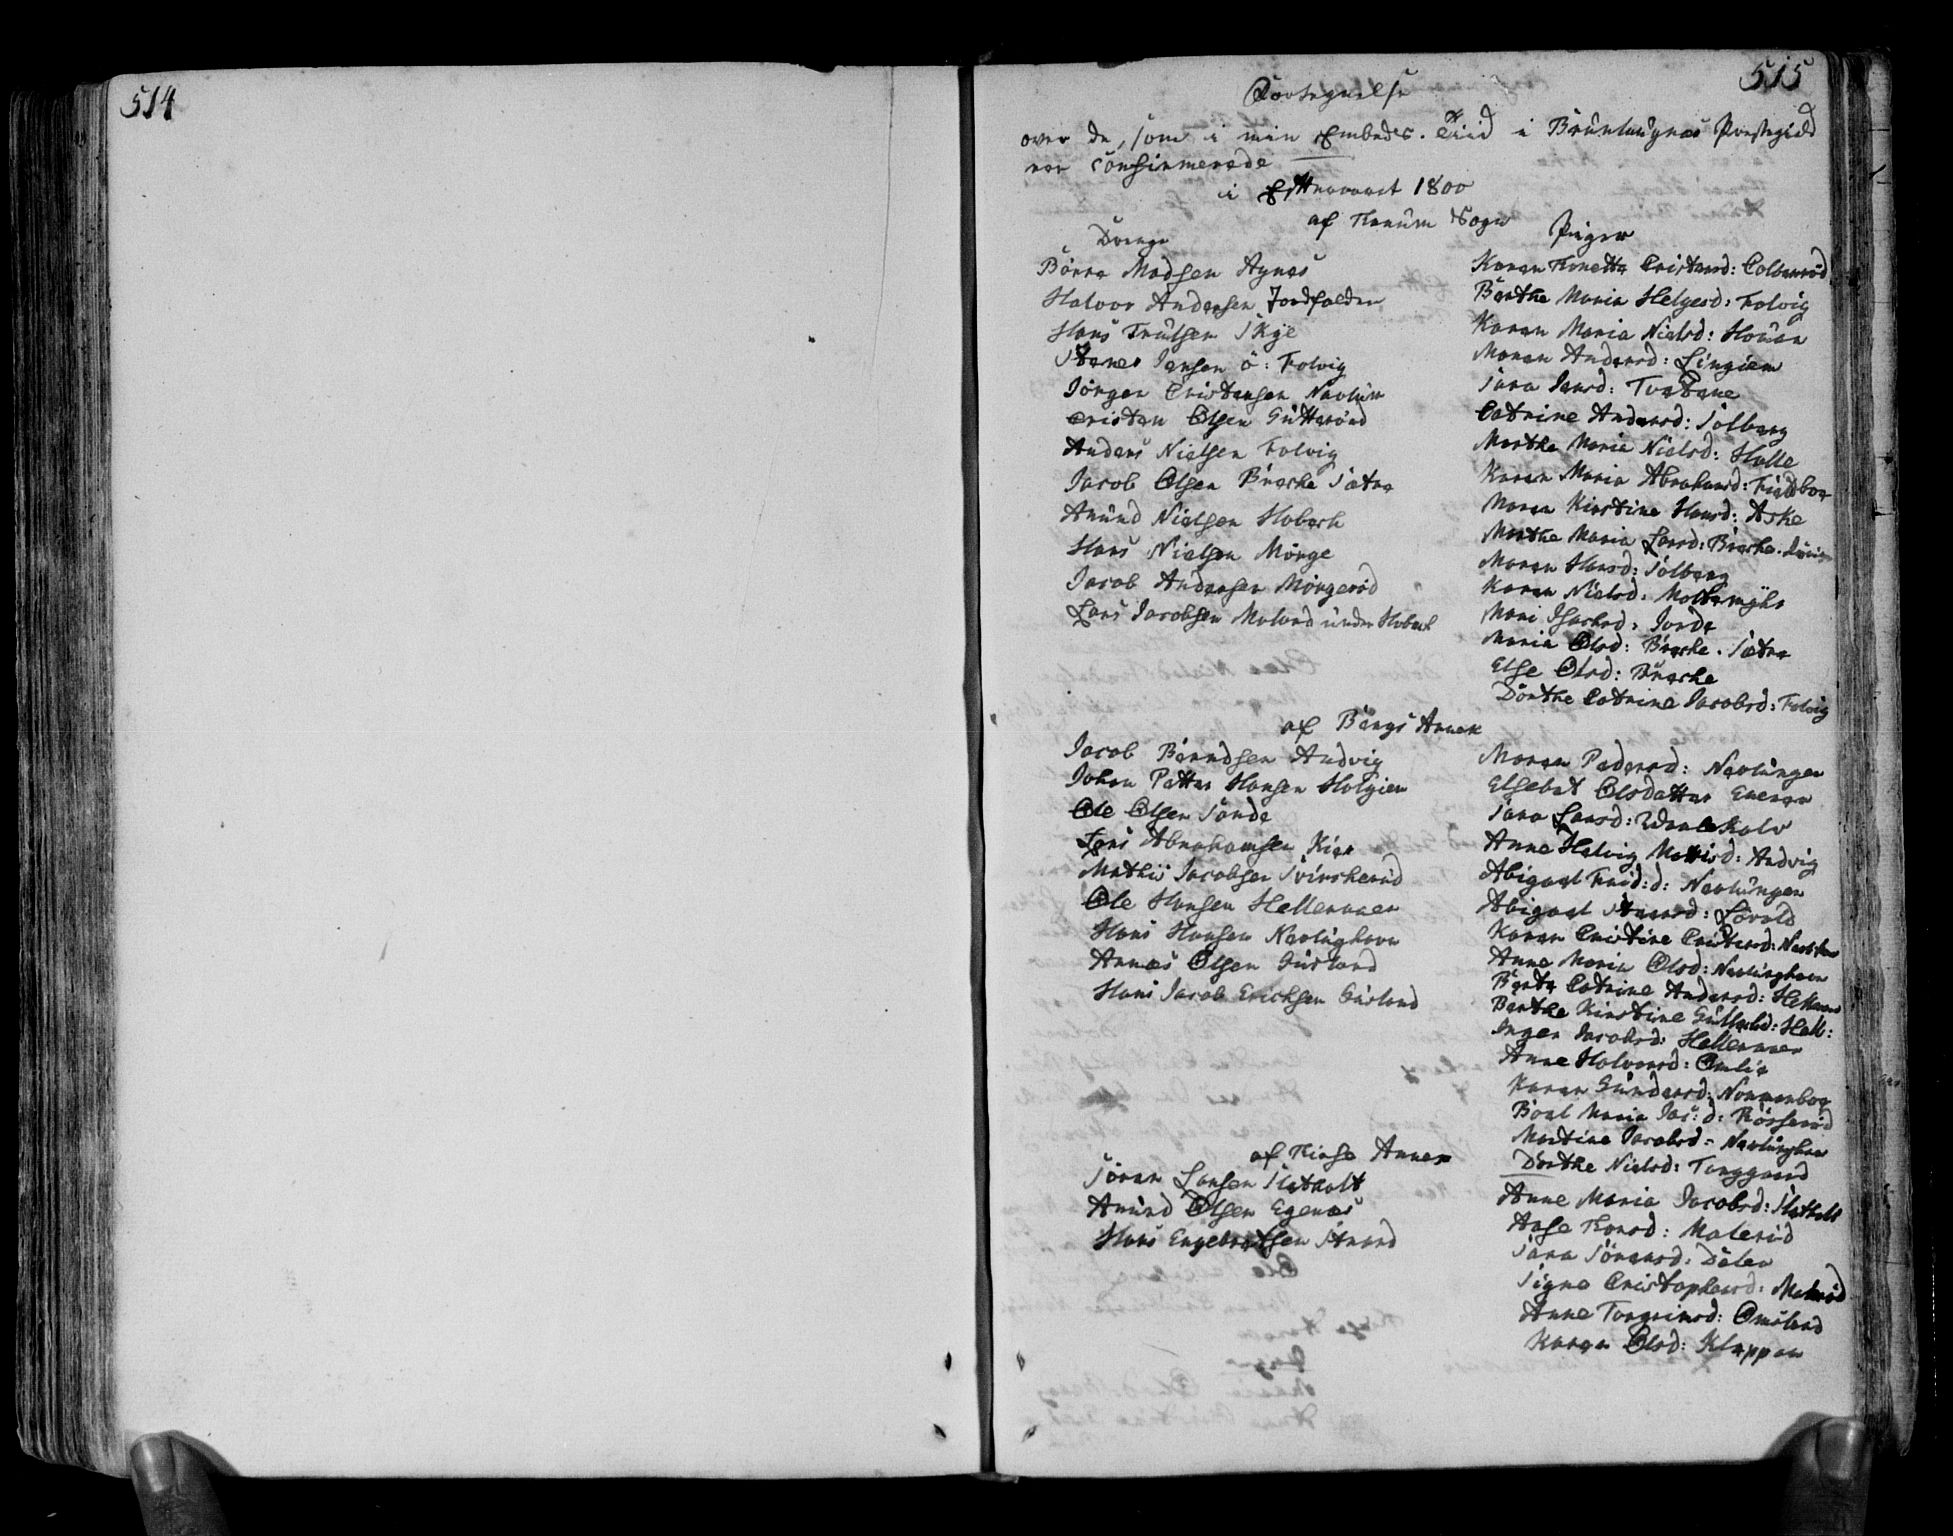 514
515
over de, som i min Embeds-Tiid i Brunlaugnæs Præstegield
ere confirmerede
i Efteraaret 1800
af Tanum Sogn
Drenge
Børre Madsen Agnæs
Halvor Andersen Jordfalden
Hans Trulsen Skye
Jens Jensen ø: Folvig
Jörgen Cristensen Navlum
Cristen Olsen Gutterönd
Anders Nielsen Folvig
Jacob Olsen Brecke Sætre
Amund Nielsen Hobech
Hans Nielsen Mörge
Jacob Andersen Mörgeröd
Lars Jacobsen under Hobech
Piger
Karen Cristensd:
Berthe Maria Helgesd: Folvig
Karen Maria Nielsd:
Maren Andersd: Lingiem
Sara Jensd: Tvetene
Catrine Andersd: Solberg
Marthe Maria Nielsd: Halle
Karen Maria Abrahamsd: Fieldboe
Maren Kirstine Hansd: Aske
Marthe Maria Larsd: Brecke
Maren Hansd: Solberg
Karen Nielsd:
Mari Isachsd: Jorde
Maria Olsd: Brecke-Sætre
Else Olsd: Brecke
Dorthe Catrine Jacobsd: Folvig
af Bergs Annex
Jacob Berndsen Andvig
Johan Petter Hansen Holgien
Ole Olsen Sande
Lars Abrahamsen Kier
Mathis Jacobsen
Ole Hansen Hellenaaen
Hans Hansen Navlinghavn
Annæs Olsen Gusland
Hans Jacob Ericksen Gusland
Maren Pedersd: Navlungen
Elsebet Olsdatter Eneren
Sara Larsd:
Anne Helvig Mattisd: Andvig
Abigael d: Navlungen
Abigael Lövald
Karen Cristine Cristensd:
Anne Maria Olsd: Navlinghavn
Berte Catrine Andersd:
Berthe Kirstine Gullichsd: Hell:
Inger Jacobsd: Hellenaaen
Anne Halvorsd: Omlie
Karen Gundersd: Nordmanboe
Boel Maria Jac: d:
Martine Jacobsd: Navlinghavn
Dorthe Nielsd:
af Hiase Annex
Sören Larsen Sletholt
Amund Olsen Egenæs
Hans Engebretsen
Anne Maria Jacobsd: Sletholt
Aase Toresd: Maleröd
Sara Sörensd: Dalen
Signe Cristophersd: Maleröd
Anne Torgrimsd: Omsland
Karen Olsd: Kleppen